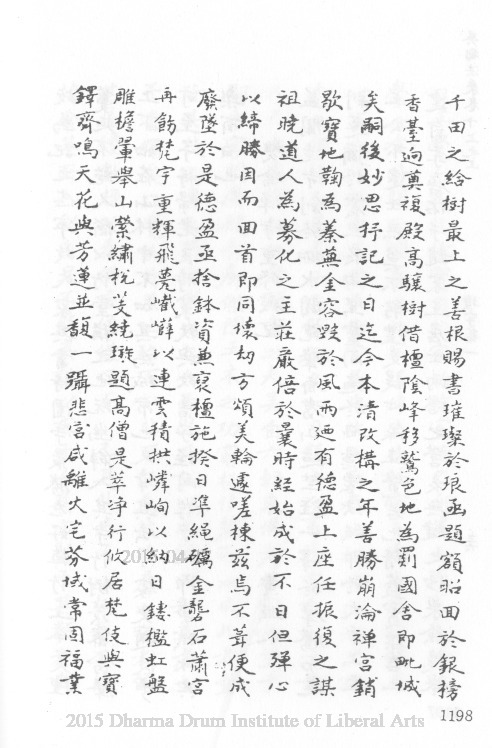 千田之給樹最上之善根賜書璀璨於琅函題額昭回於銀榜
香臺迥奠複殿高驤樹借檀陰峰移鷲色地為罽國舍即毗城
矣嗣後妙思抒記之日迄今本清改構之年善勝崩淪禪宮銷
歇寶地鞠為蓁蕪金容毀於風雨廼有德盈上座任振復之謀
祖曉道人為募化之主莊嚴倍於曩時經始成於不日但殫心
以締勝因而回首即同壞劫方頌美輪遽嗟棟茲焉不葺便成
廢墜於是德盈亟捨鉢資兼裒檀施揆日準繩礪金礱石蕭宮
再飭梵宇重輝飛甍巀嶭以連雲積拱嶙峋以納日鏤檻虹盤
雕檐翬舉山縈繡棁芰繞璇題高僧是萃淨行攸居梵伎與寶
鐸齊鳴天花與芳蓮並馥一躡悲宮咸離火宅芬域常固福業
1198
2015 Dharma Drum Institute of Liberal Arts